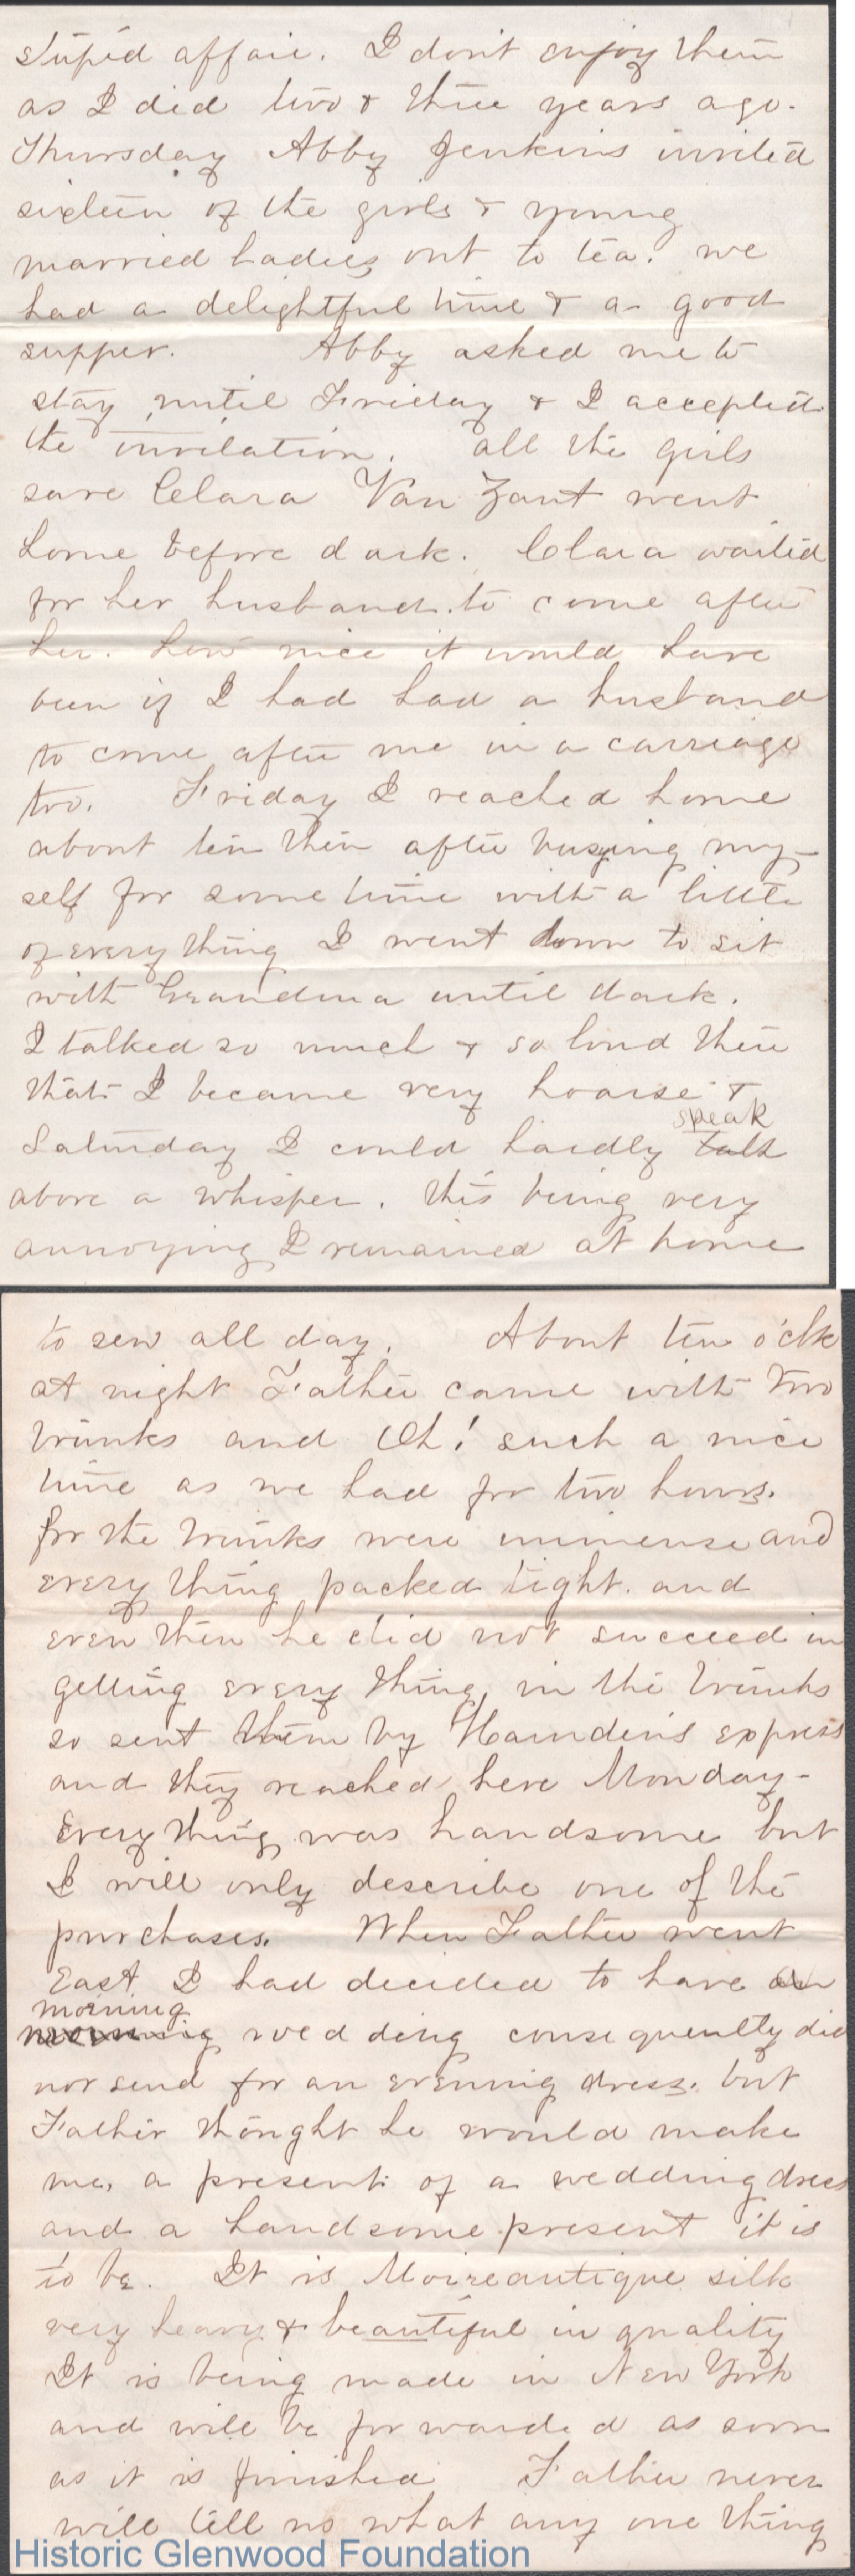 stupid affair. I don't enjoy them
as I did two & three years ago.
Thursday Abby Jenkins invited
sixteen of the girls & young
married ladies out to tea. we
had a delightful time & a good
supper. Abby asked me to
stay until Friday & I accepted
the invitation. all the girls
save Clara Van Zant went
home before dark. Clara waited
for her husband to come after
her. how nice it would have
been if I had had a husband
to come after me in a carriage
too. Friday I reached home
about ten then after busying my-
self for some time with a little
of every thing I went down to sit
with Grandma until dark.
I talked so much & so loud there
that I became very hoarse &
speak
Saturday I could hardly talk
above a whisper. this being very
annoying I remained at home
to sew all day. About ten o'clk
at night Father came with two
trunks and Oh! such a nice
time as we had for two hours.
for the trunks were immense and
every thing packed tight. and
even then he did not succeed in
getting every thing in the trunks
so sent them by Harnden's express
and they reached here Monday-
Every thing was handsome but
I will only describe one of the
purchases. When Father went
East I had decided to have a
morning
morning wedding consequently did
not send for an evening dress. but
Father thought he would make
me, a present of a wedding dress
and a handsome present it is
to be. It is Moireantique silk
very heavy & beautiful in quality
It is being made in New York
and will be forwarded as soon
as it is finished Father never
will tell us what any one thing
Historic Glenwood Foundation